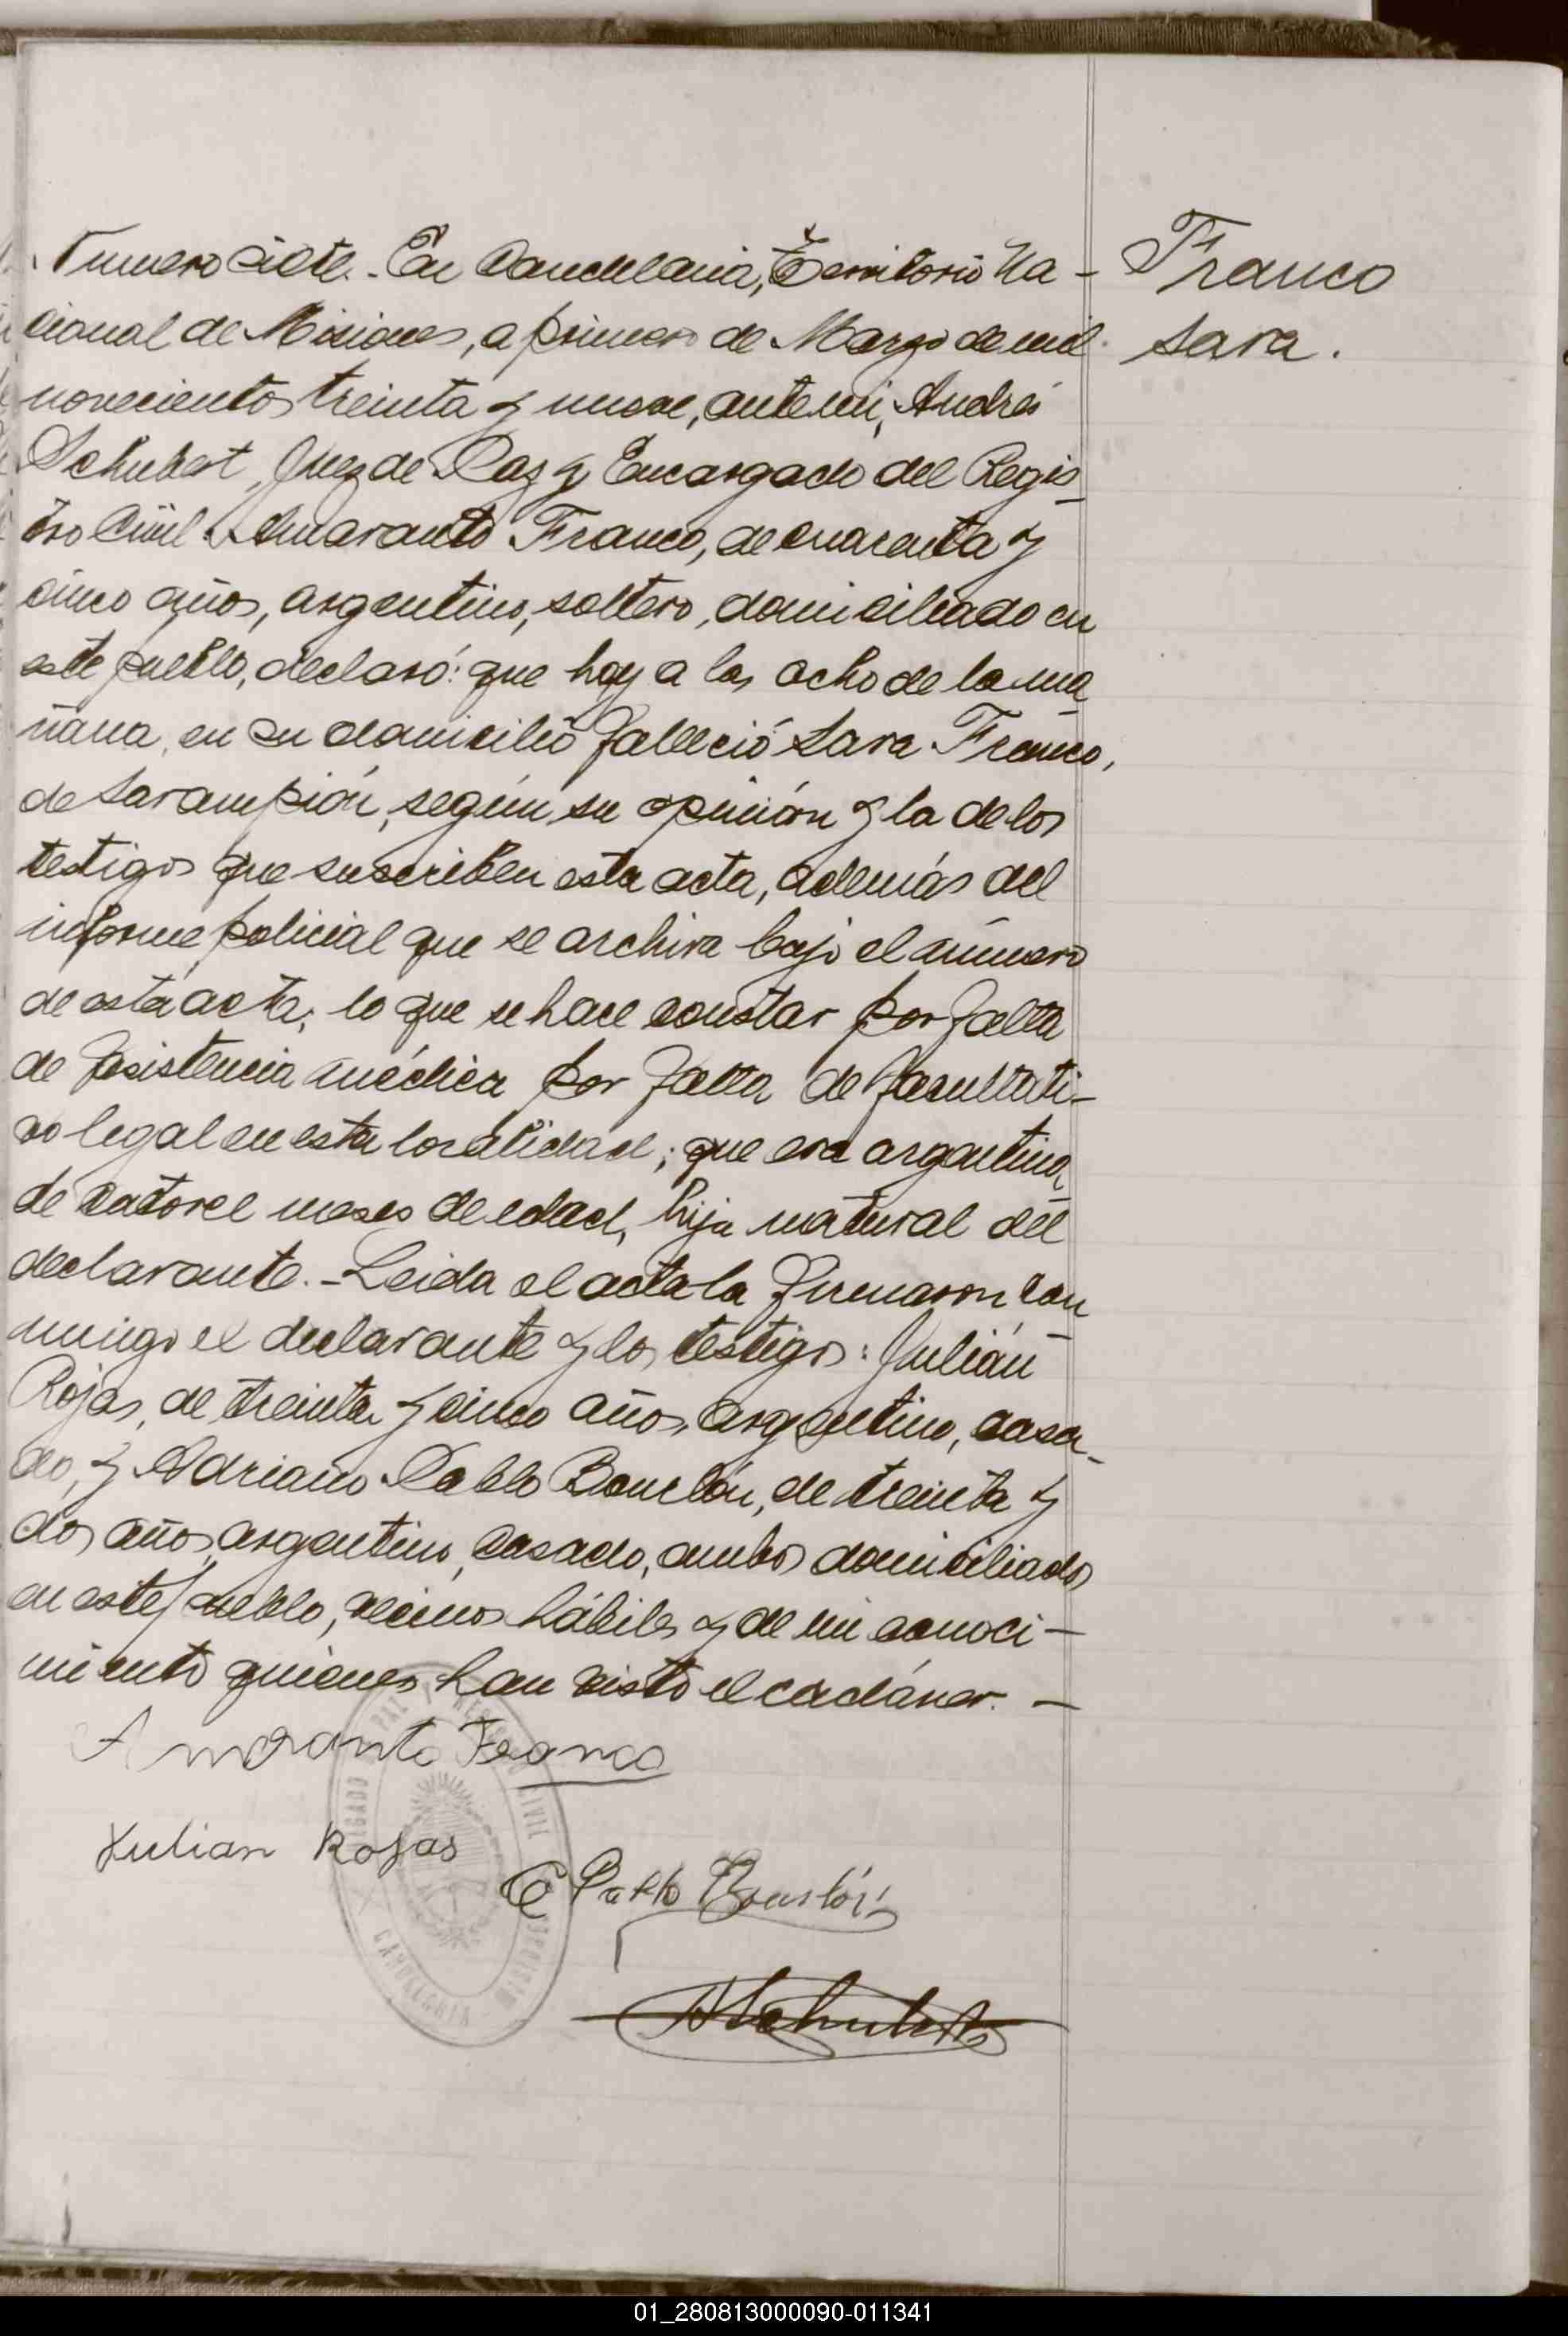 Numero siete. - En Candelaria, Territorio Na-
cional de Misiones, a primero de Marzo de mil
novecientos treinta y nueve, ante mi, Andrés
Schubert, Juez de Paz y Encargado del Regis-
tro Civil. Amaranto Franco, de cuarenta y
cinco años, argentino, soltero, domiciliado en
este pueblo, declaró: que hoy a las ocho de la ma-
ñana, en su domicilio falleció Sara Franco,
de sarampión, según su opinión y la de los
testigos que suscriben esta acta, además del
informe policial que se archiva bajo el número
de esta acta; lo que se hace constar por falta
de asistencia médica por falta de facultati-
vo legal en esta localidad; que era argentina,
de catorce meses de edad, hija natural del
declarante. - Leida el acta la firmaron con-
migo el declarante y los testigos: Julián
Rojas, de treinta y cinco años, argentino, casa-
do, y Adriano Pablo Bourlón, de treinta y
dos años, argentino, casado, ambos domiciliados
en este pueblo, vecinos hábiles y de mi conoci-
miento quienes han visto el cadáver. -
Franco
Sara.
Amaranto Franco
Julian Rojas
Pablo Bourlón
ASchubert
PAZ Y REGISTRO CIVIL
CANDELARIA
MISIONES
01_280813000090-011341